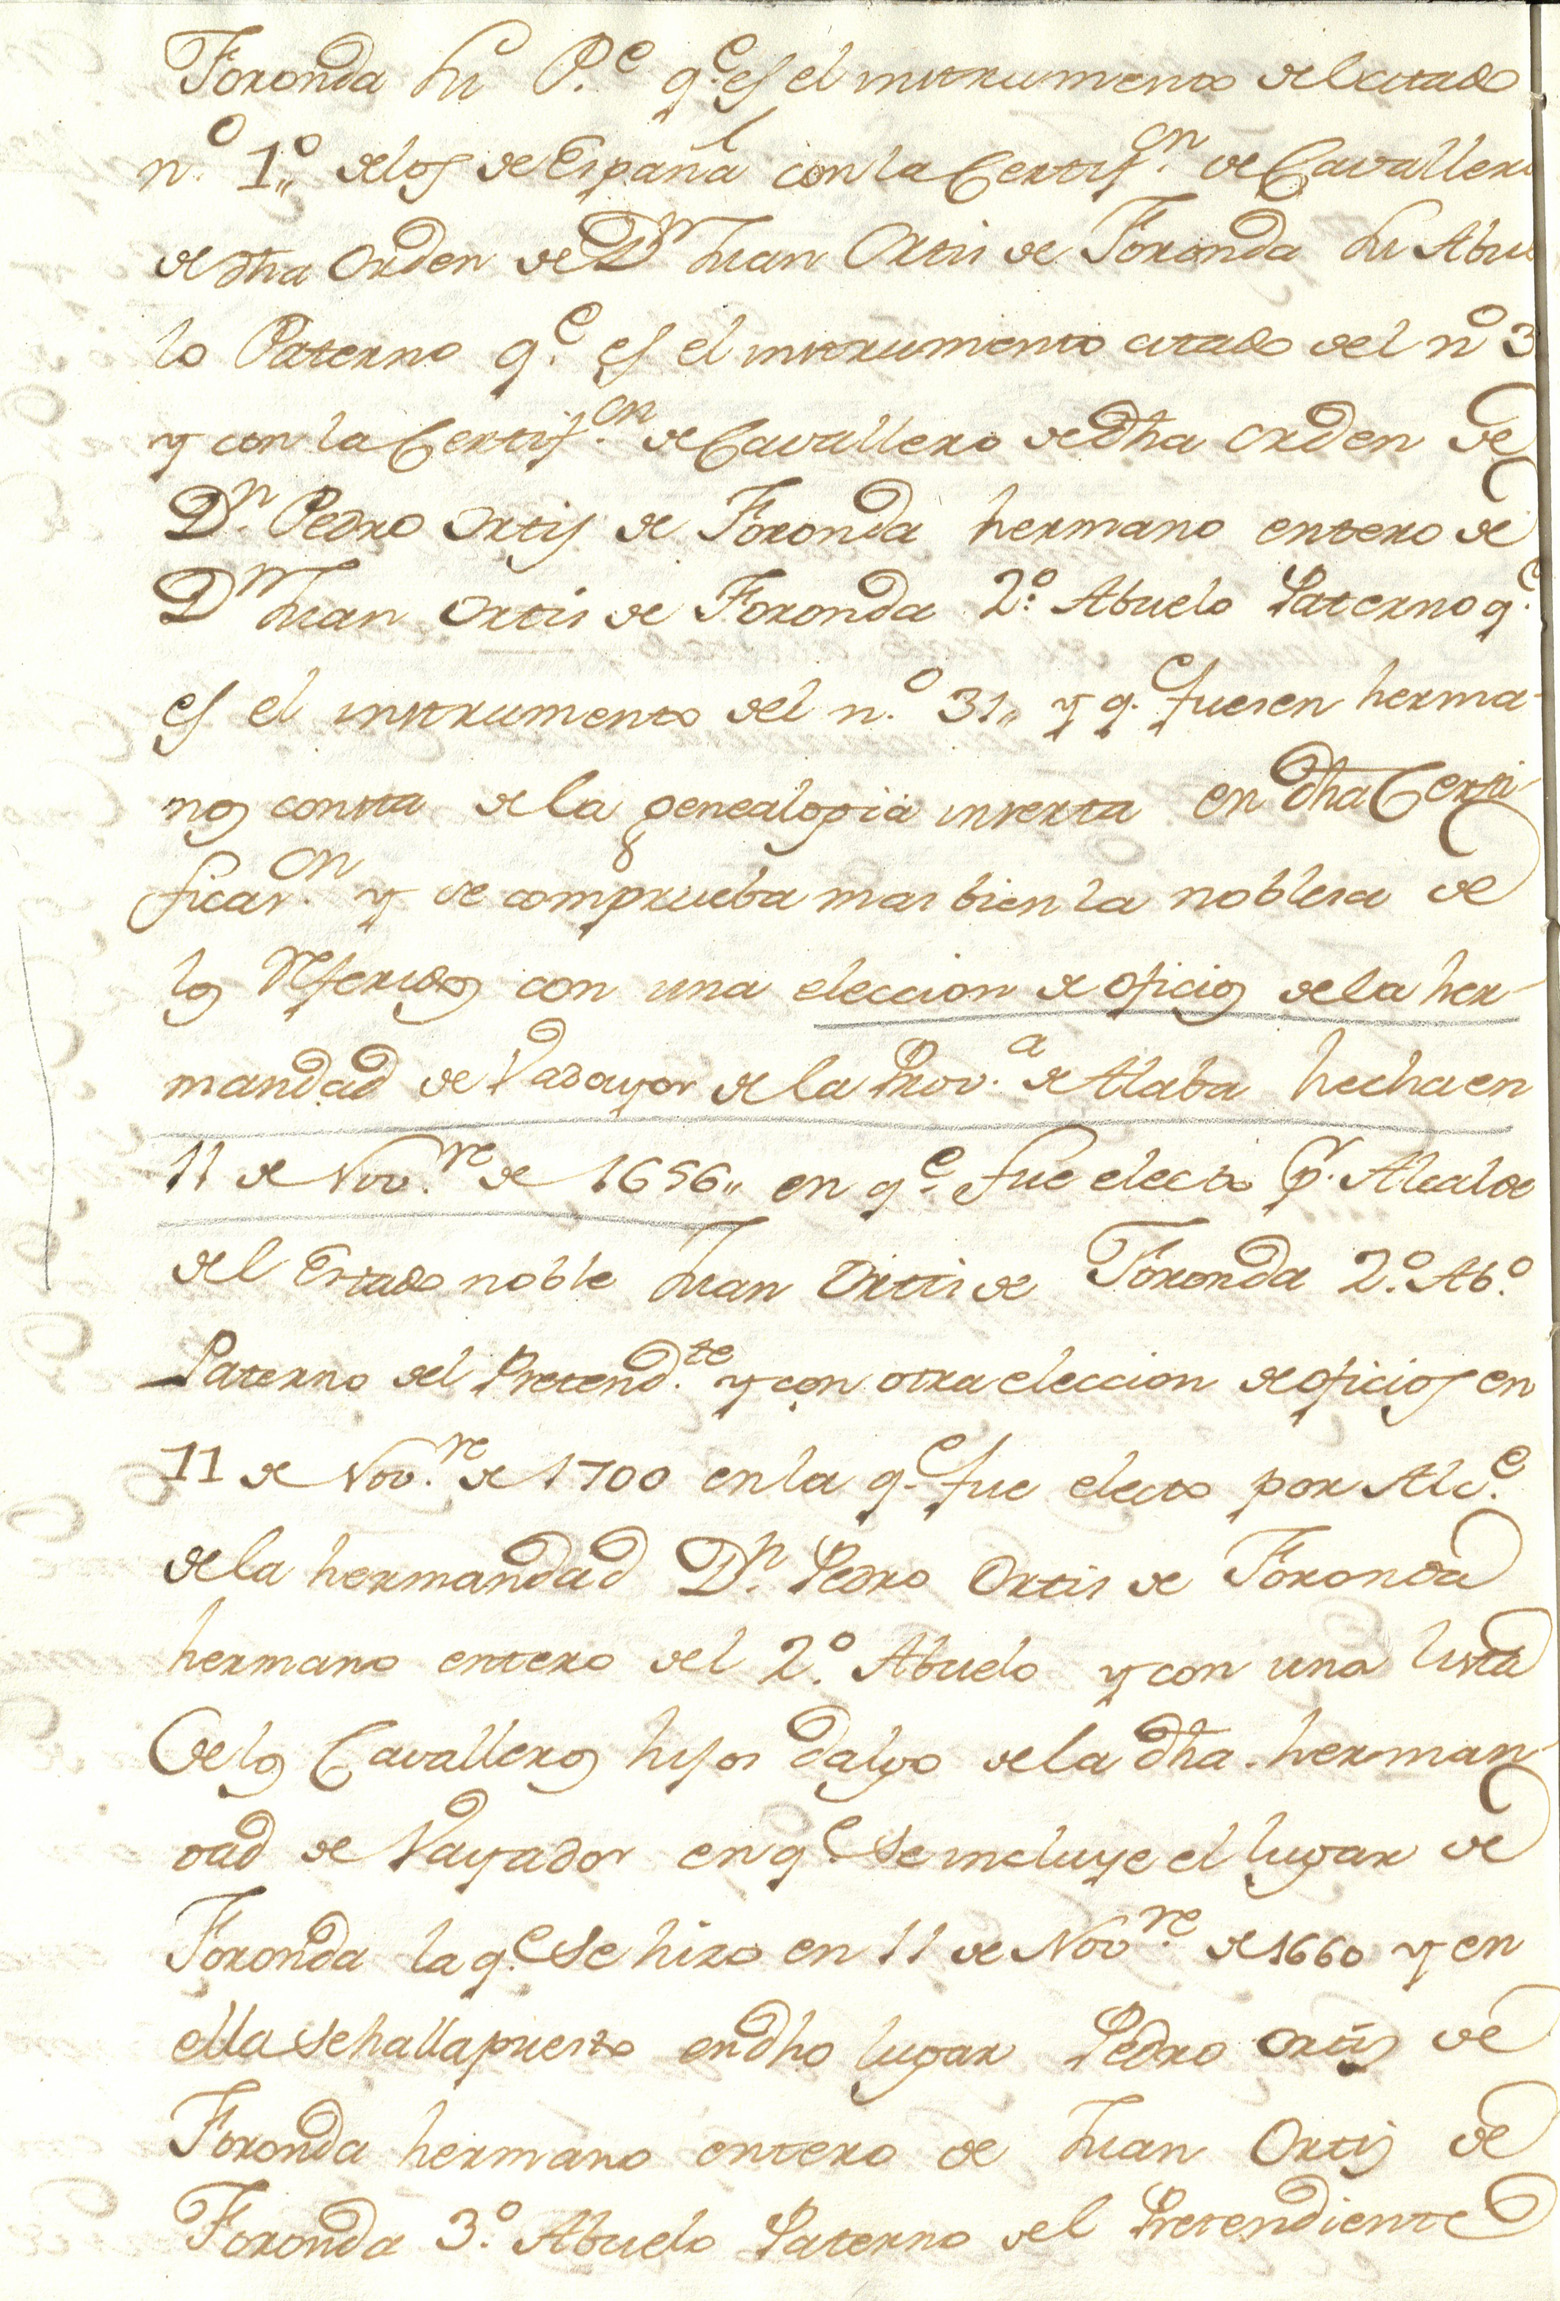 Foronda su P.e q.e es el instrumento del citado
n.o 1.o de los de España con la Certif.cn de Cavallero
de dha Orden de Dn Juan Ortis de Foronda su Abue
lo Paterno q.e es el instrumento citado del no 3
y con la Certif.cn de Cavallero de dha orden de
Dn. Pedro Ortis de Foronda hermano entero de
Dn Juan Ortis de Foronda 2.o Abuelo Paterno q.e
es el instrumento del n.o 31,, y q.e fuesen herma-
nos consta de la genealogia inserta en dha Certi-
ficac.on y se comprueba mas bien la noblesa de
los Referidos con una eleccion de oficios de la her-
mandad de Badayoz de la Prov.a de Alaba hecha en
11 de Nov.re de 1656,, en q.e fue electo p.r Alcalde
del Estado noble Juan Ortis de Foronda 2.o Ab.o
Paterno del Pretend.te y con otra eleccion de oficios en
11 de Nov.re de 1700 en la q.e fue electo por Alc.e
de la hermandad Dn. Pedro Ortis de Foronda
hermano entero del 2.o Abuelo y con una lista
de los Cavalleros hijos dalgo de la dha. herman-
dad de Bayador en q.e se incluye el lugar de
Foronda la q.e se hizo en 11 de Nov.re de 1660 y en
ella se halla puesto en dho lugar Pedro Ortis de
Foronda hermano entero de Juan Ortis de
Foronda 3.o Abuelo Paterno del Pretendiente